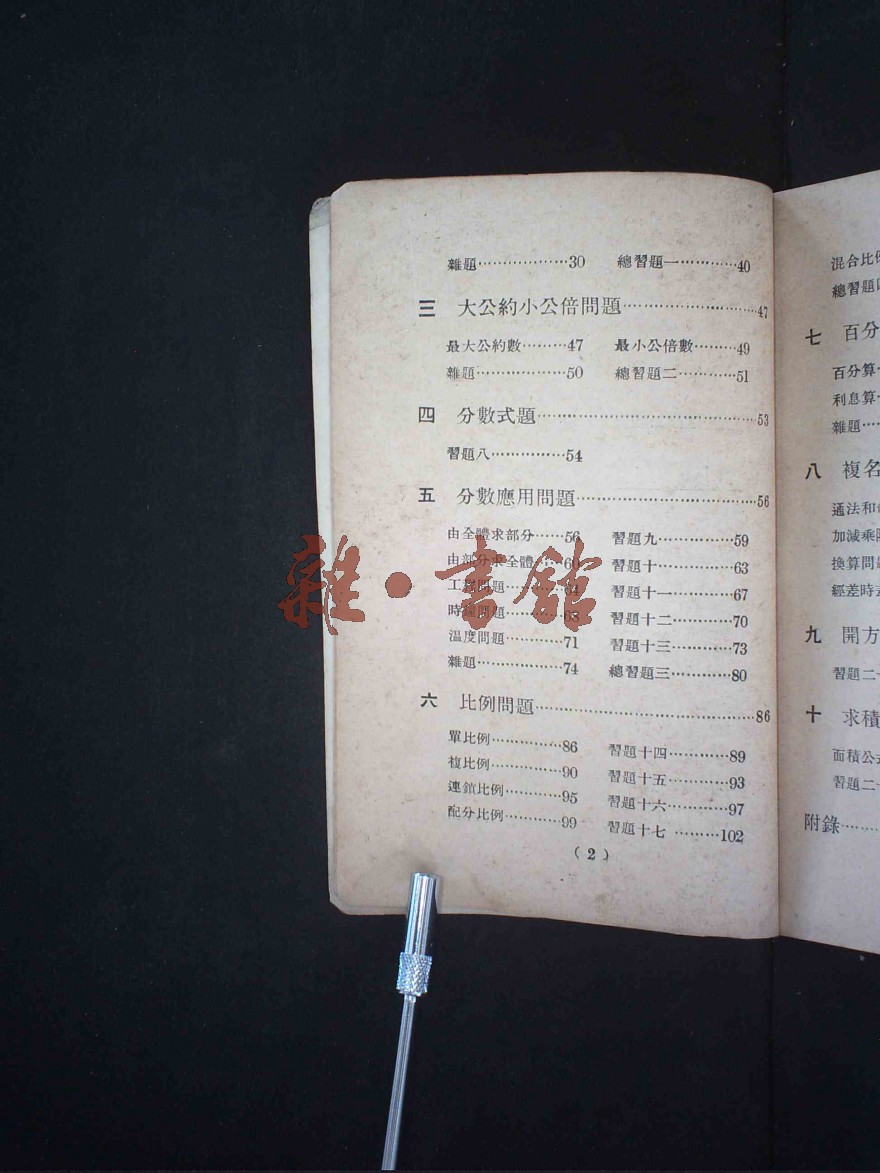 雜題………………30 總習題一…………40
三 大公約小公倍問題………………………47
最大公約數………47 最小公倍數………49
雜題………………50 總習題二…………51
四 分數式題……………………………………53
習題八……………54
五 分數應用問題………………………………56
由全體求部分……56 習題九……………59
由部分求全體……60 習題十……………63
工程問題…………64 習題十一…………67
時鐘問題…………68 習題十二…………70
溫度問題…………71 習題十三…………73
雜題………………74 總習題三…………80
六 比例問題……………………………………86
單比例……………86 習題十四…………89
複比例……………90 習題十五…………93
連鎖比例…………95 習題十六…………97
配分比例…………99 習題十七 ………102
( 2 )
混合比
總習題
七 百分
百分算
利息算
雜題……
八 複名
通法和
加減乘
換算問
經差時
九 開方
習題二
十 求積
面積公
習題二
附錄……
雜·書館